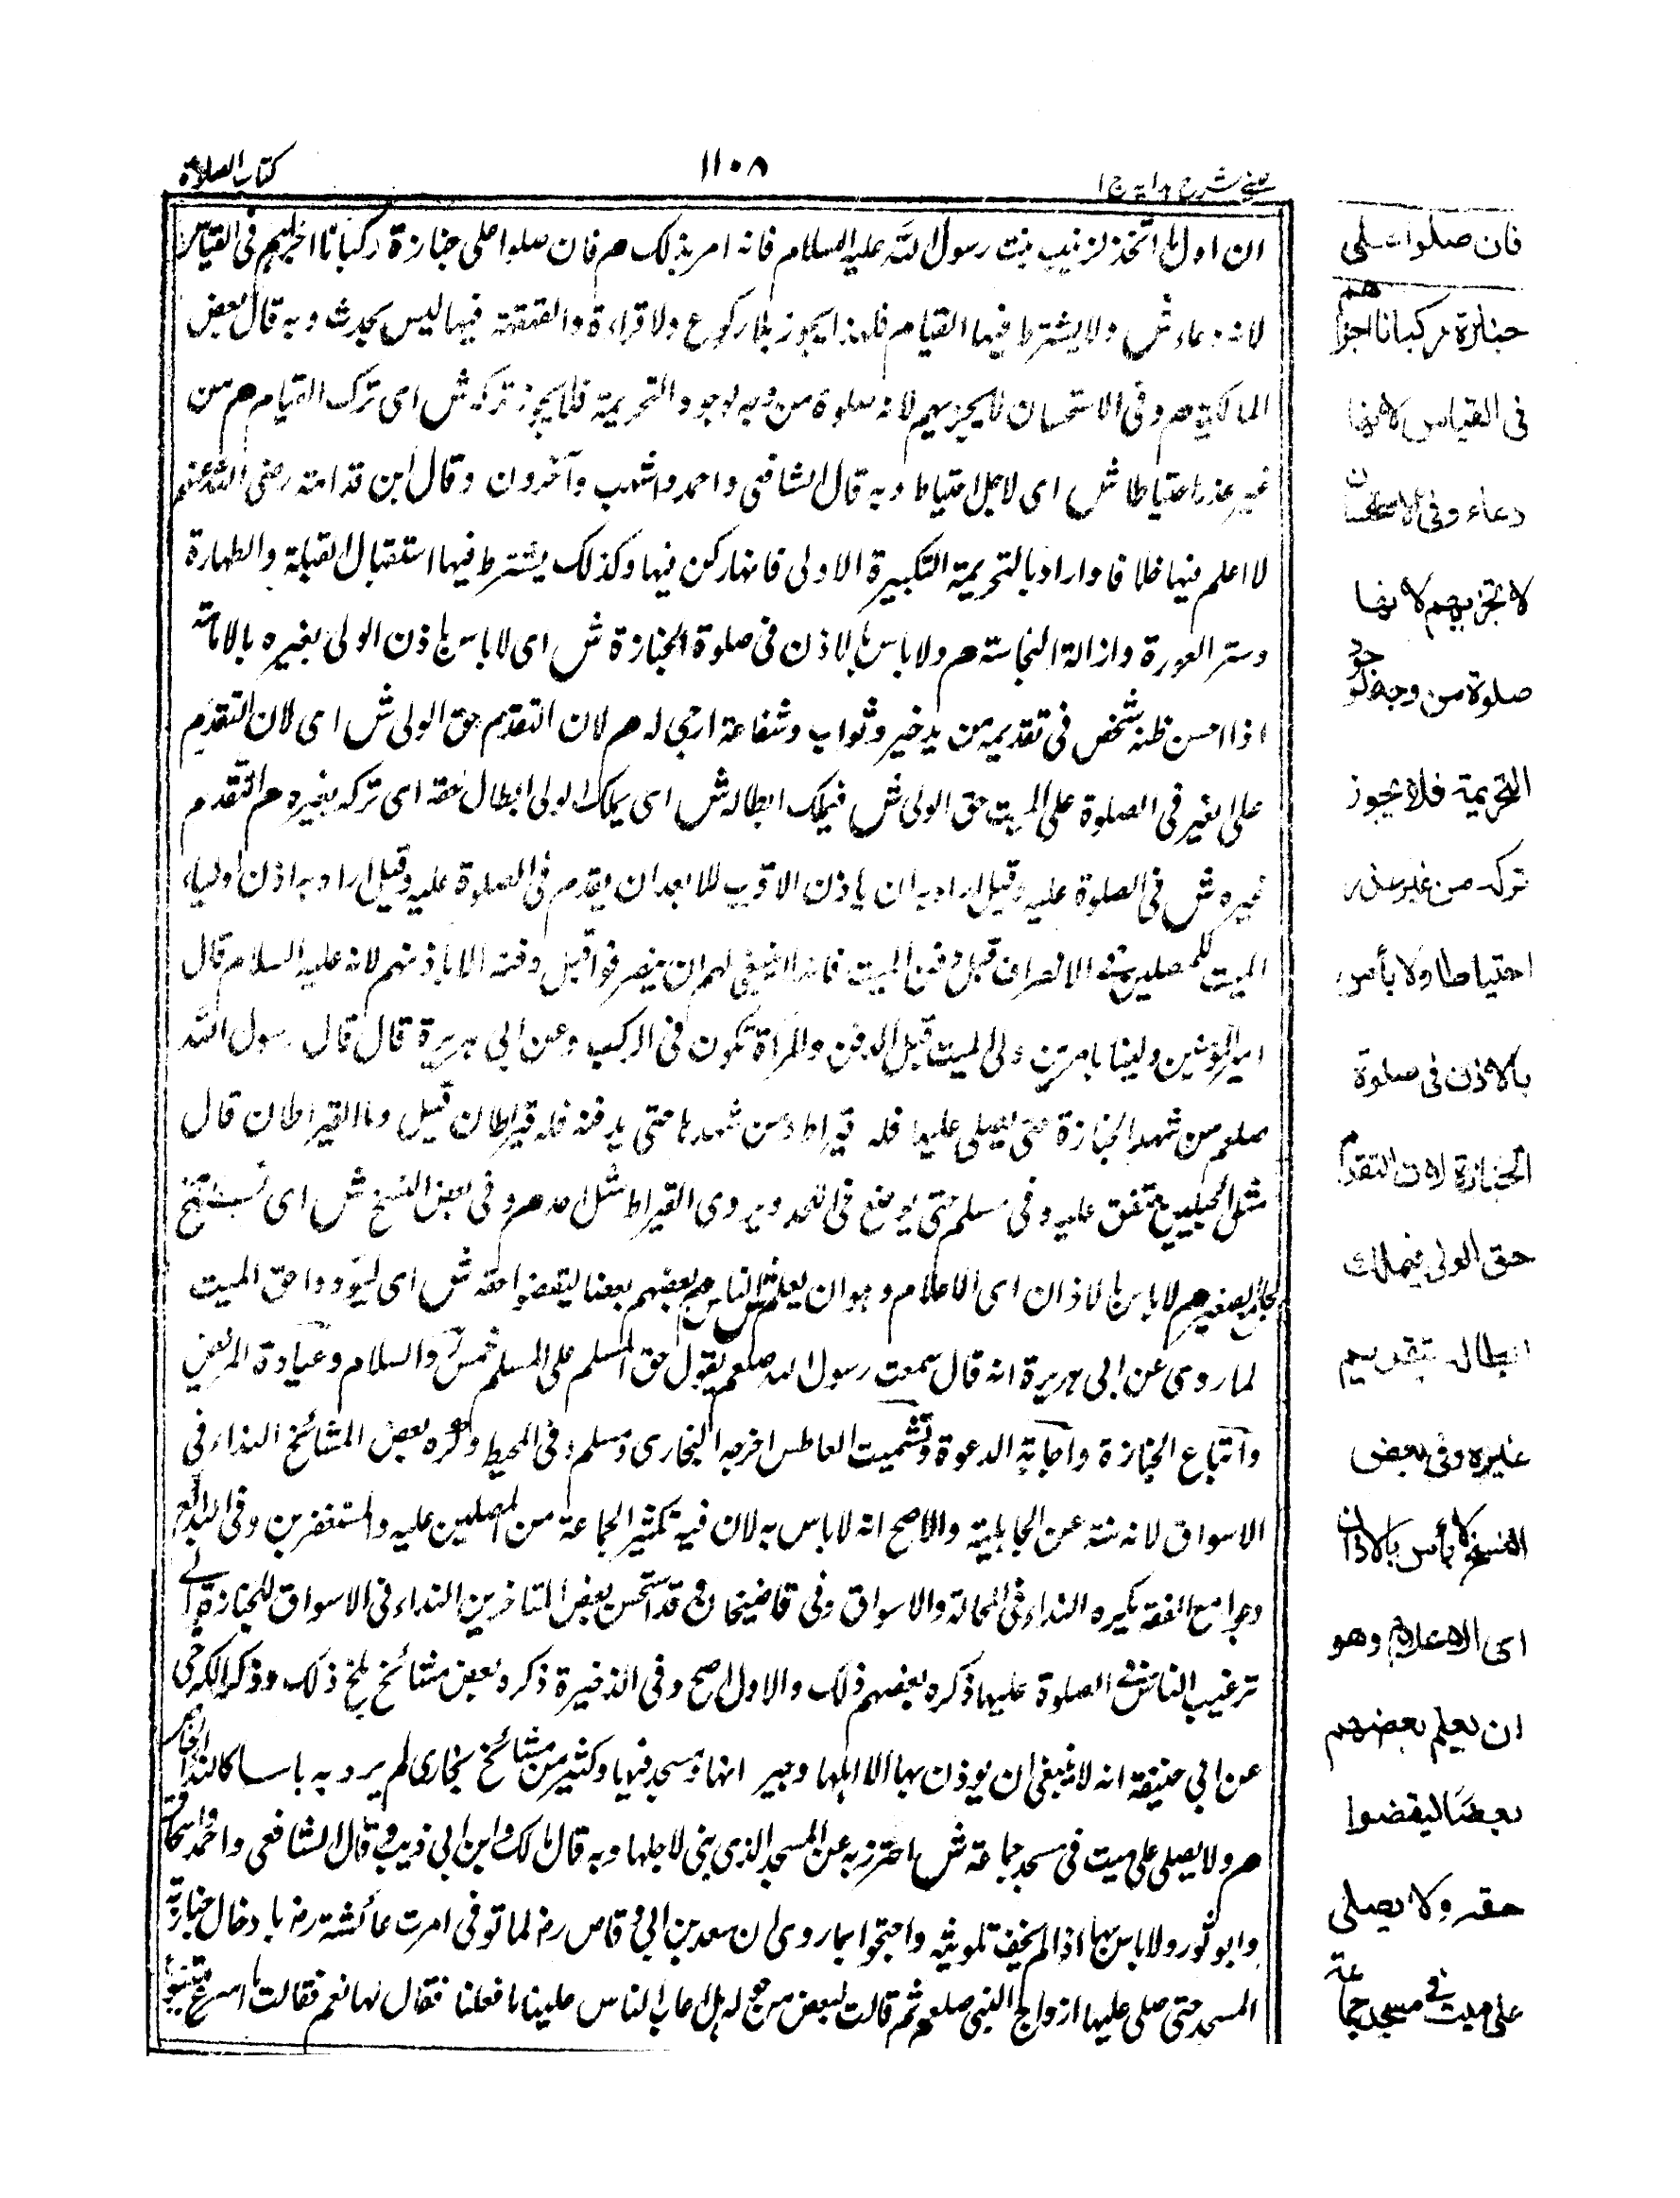 عینی شرح هدایه ج ۱
۱۱۰۸
كتاب الصلاة
ان اول ما اتخذ لزينب بنت رسول الله عليه السلام فانه امر بذلك هم فان صلوا على جنازة ركبانا اجزاهم فى القياس
لانه دعاء ش ولا يشترط فيها القيام فلهذا يجوز بلا ركوع ولا قراءة والقهقهة فيها ليس بحدث وبه قال بعض
المالكية هم وفى الاستحسان لا يجزيهم لانه صلوة من وجه لوجود التحريمة فلا يجوز تركه ش اى ترك القيام هم من
غير عذر احتياطا ش اى لاجل احتياط وبه قال الشافعى واحمد واشهب وآخرون وقال ابن قدامة رضى الله عنهم
لا اعلم فيها خلافا واراد بالتحريمة التكبيرة الاولى فانها ركن فيها وكذلك يشترط فيها استقبال القبلة والطهارة
وستر العورة وازالة النجاسة هم ولا باس بالاذن فى صلوة الجنازة ش اى لا باس باذن الولى بغيره بالامامة
اذا احسن ظنه شخص فى تقديمه من يد خير وثواب وشفاعة ارجى له هم لان التقدم حق الولى ش اى لان التقدم
على الغير فى الصلوة على الميت حق الولى ش فيملك ابطاله ش اى يملك الولى ابطال حقه اى تركه بغيره هم التقدم
غيره ش فى الصلوة عليه وقيل اراد به ان ياذن الاقرب للابعد ان يقدم فى الصلوة عليه وقيل اراد به اذن اولياء
الميت للمصلين فى الانصراف قبل دفن الميت فانه لا ينبغى لهم ان ينصرفوا قبل دفنه الا باذنهم لانه عليه السلام قال
امير المؤمنين وليسا باميرين ولى الميت قبل الدفن والمرأة تكون فى الركب وعن ابى هريرة قال قال رسول الله
صلعم من شهد الجنازة حتى يصلى عليها فله قيراط ومن شهدها حتى يدفنه فله قيراطان قيل وما القيراطان قال
مثل الجبلين متفق عليه وفى مسلم حتى يوضع فى اللحد ويروى القيراط مثل احد هم وفى بعض النسخ ش اى نسخ
الجامع الصغير هم لا باس بالاذان اى الاعلام وهو ان يعلم ش الناس هم بعضهم بعضا ليقضوا حقه ش اى ليؤدوا حق الميت
لما روى عن ابى هريرة انه قال سمعت رسول الله صلعم يقول حق المسلم على المسلم خمس رد السلام وعيادة المريض
واتباع الجنازة واجابة الدعوة وتشميت العاطس اخرجه البخارى ومسلم وفى المحيط وكره بعض المشائخ النداء فى
الاسواق لانه سنة عن الجاهلية والاصح انه لا باس به لان فيه تكثير الجماعة من المصلين عليه والمستغفرين وفى البدائع
وجوامع الفقه يكره النداء فى المحالة والاسواق وفى قاضيخان وقد استحسن بعض المتاخرين النداء فى الاسواق للجنازة الى
ترغيب الناس فى الصلوة عليها ذكره بعضهم ذلك والاول اصح وفى الذخيرة ذكره بعض مشائخ بلخ ذلك وذكر الكرخى
عن ابى حنيفة انه لا ينبغى ان يوذن بها الا اهلها وجيرانها ومسجد فيها وكثير من مشائخ بخارى لم يرد به باسا كالنداء الخاص
هم ولا يصلى على ميت فى مسجد جماعة ش احترز به عن المسجد الذى بنى لاجلها وبه قال مالك وابن ابى ذيب وقال الشافعى واحمد واسحاق
وابو ثور ولا باس بها اذا لم يخف تلويثه واحتجوا بما روى ان سعد بن ابى وقاص رضه لما توفى امرت عائشة رضه بادخال جنازته
المسجد حتى صلى عليها ازواج النبى صلعم ثم قالت لبعض من حوله هل عاب الناس علينا ما فعلنا فقال لها نعم فقالت ما اسرع
فان صلوا على
جنازة ركبانا اجزاهم
فى القياس لانها
دعاء وفى الاستحسان
لا تجزيهم لانها
صلوة من وجه لوجود
التحريمة فلا يجوز
تركه من غير عذر
احتياطا ولا بأس
بالاذن فى صلوة
الجنازة لان التقدم
حق الولى فيملك
ابطاله بتقديم
غيره وفى بعض
النسخ لا بأس بالاذان
اى الاعلام وهو
ان يعلم بعضهم
بعضا ليقضوا
حقه ولا يصلى
على ميت فى مسجد جماعة